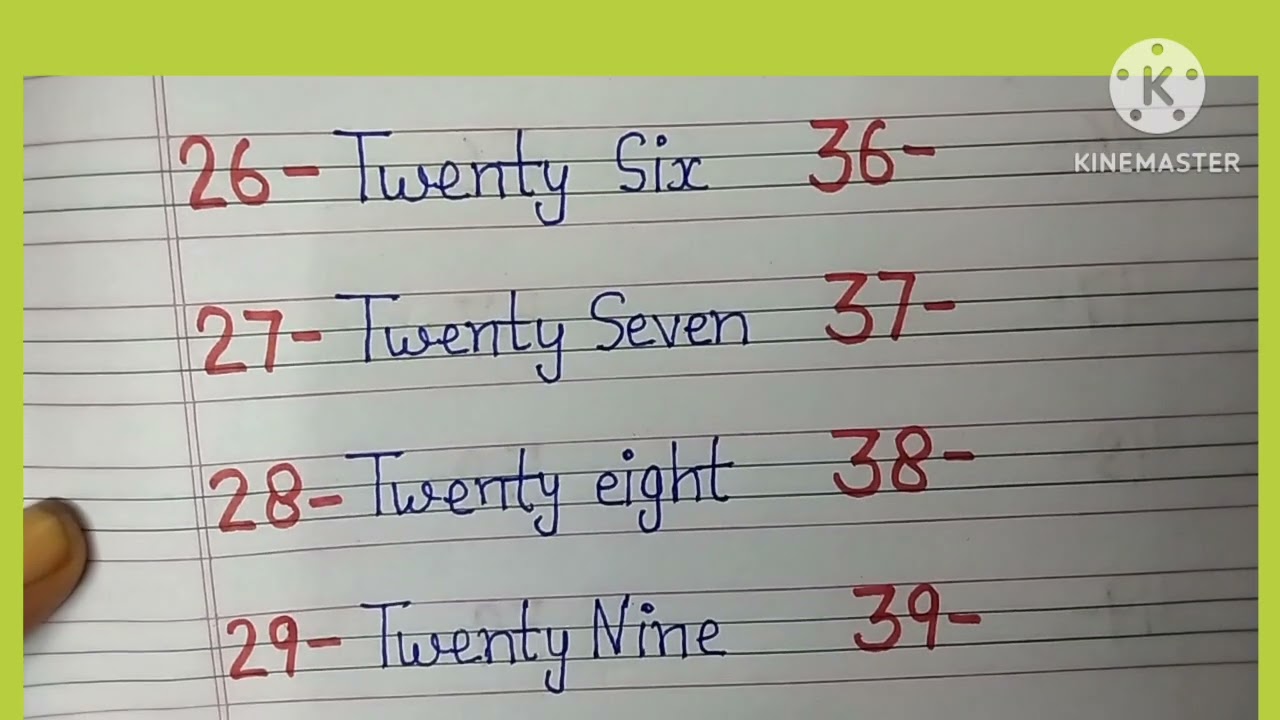 K
KINEMASTER
26- Twenty Six 36-
27- Twenty Seven 37-
28- Twenty eight 38-
29- Twenty Nine 39-